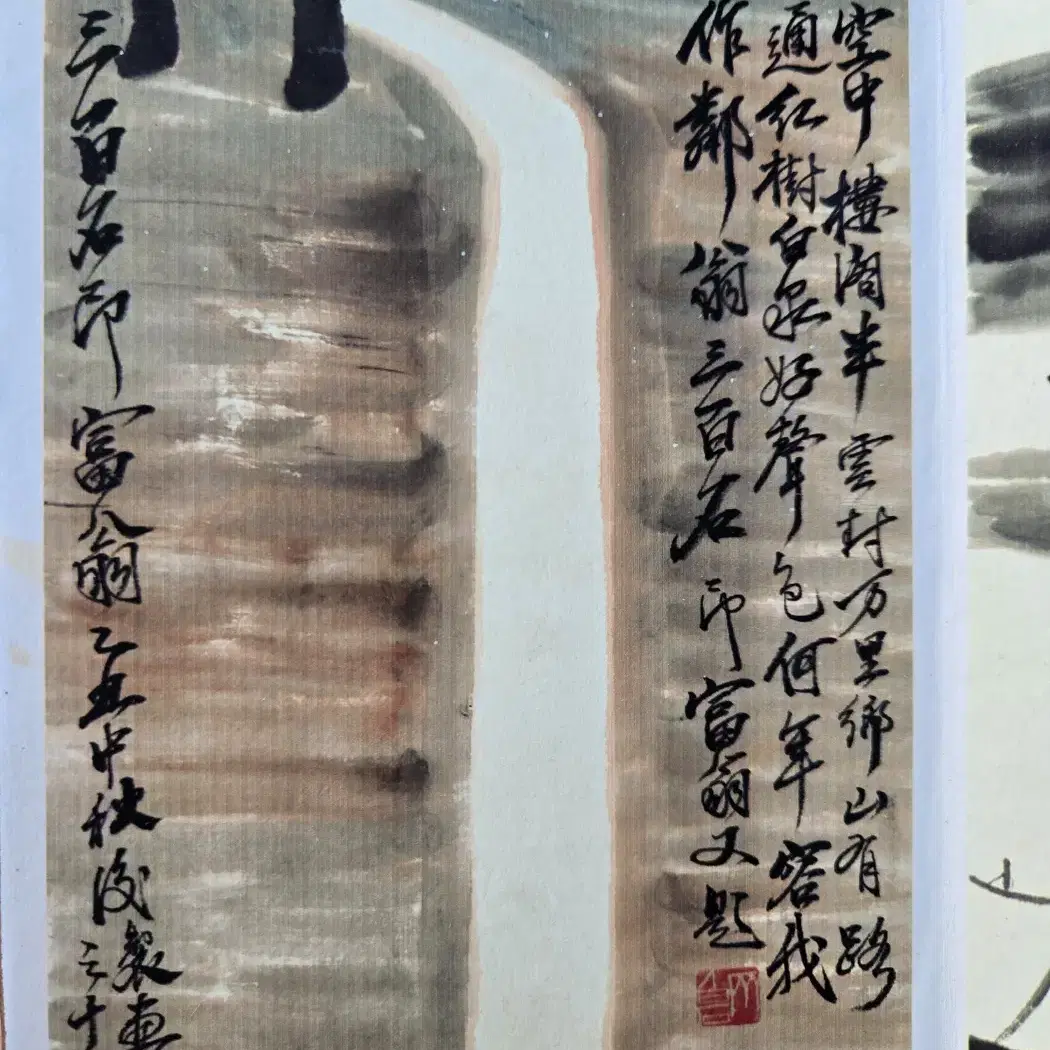 空中樓閣半雲封万里鄉山有路
通紅樹白泉好聲色何年容我
作鄰翁三百石印富翁又題
三百石印富翁乙丑中秋後製畫
三十